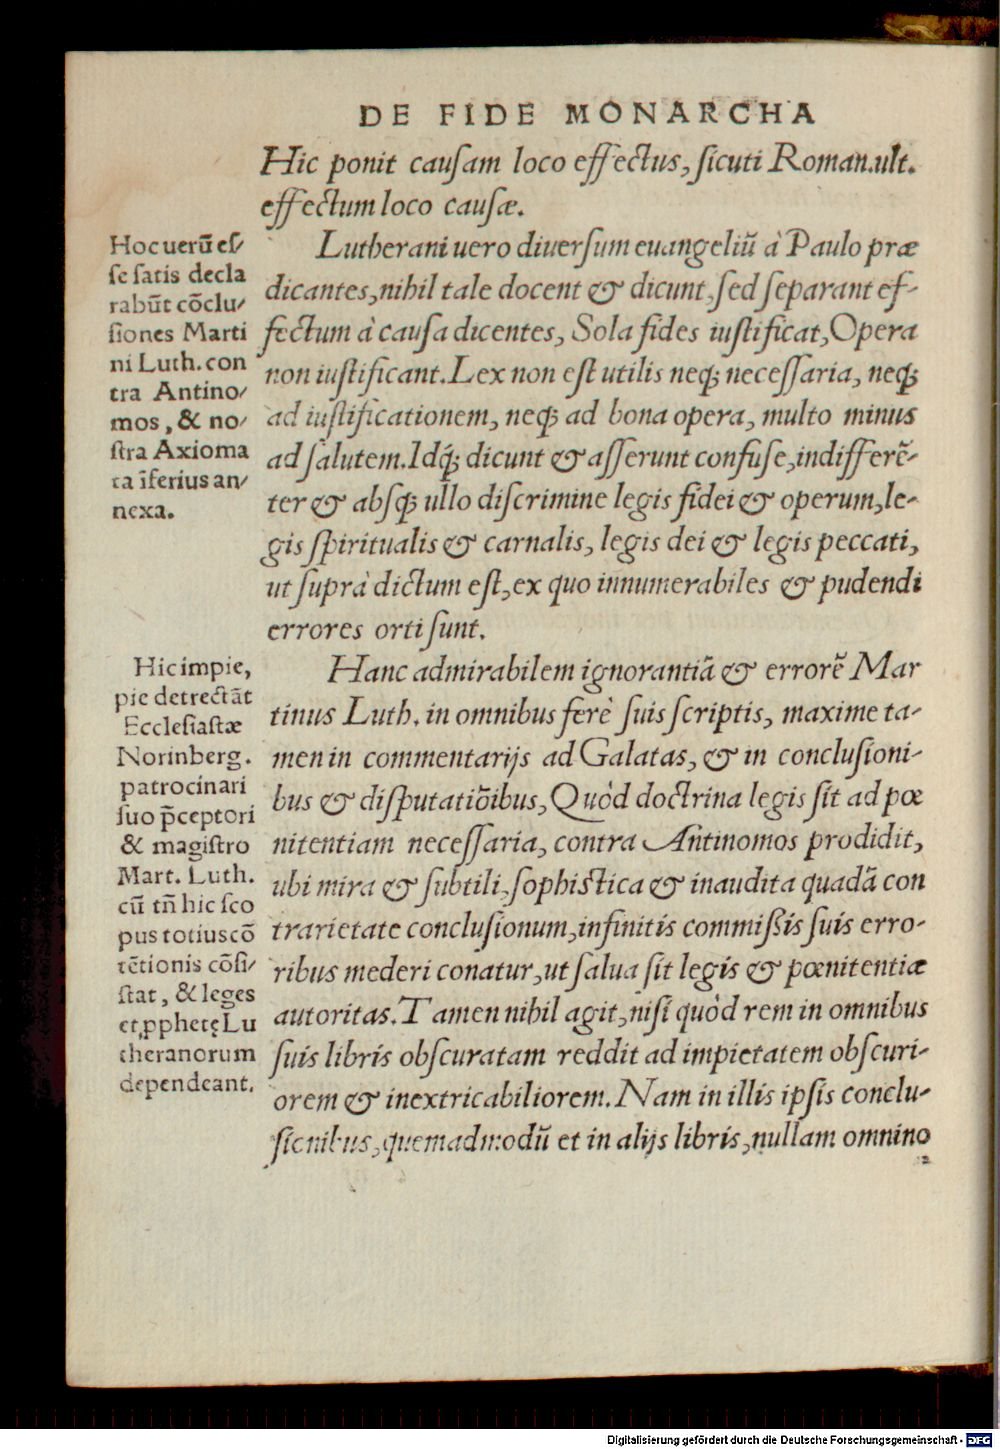 DE FIDE MONARCHA
Hic ponit cauſam loco effectus, ſicuti Roman.ult.
effectum loco cauſæ.
Hoc uerū eſ/
ſe ſatis decla
rabūt cōclu/
ſiones Marti
ni Luth. con
tra Antino/
mos, & no/
ſtra Axioma
ta īferius an/
nexa.
Lutherani uero diuerſum euangeliū à Paulo præ
dicantes, nihil tale docent & dicunt, ſed ſeparant ef-
fectum à cauſa dicentes, Sola fides iuſtificat, Opera
non iuſtificant. Lex non eſt utilis neq; neceſſaria, neq;
ad iuſtificationem, neq; ad bona opera, multo minus
ad ſalutem. Idq́; dicunt & aſſerunt confuſe, indifferē-
ter & abſq; ullo diſcrimine legis fidei & operum, le-
gis ſpiritualis & carnalis, legis dei & legis peccati,
ut ſuprà dictum eſt, ex quo innumerabiles & pudendi
errores orti ſunt.
Hic impie,
pie detrectāt
Eccleſiaſtæ
Norinberg.
patrocinari
ſuo p̄ceptori
& magiſtro
Mart. Luth.
cū tn̄ hic ſco
pus totius cō
tētionis cōſi/
ſtat, & leges
et ꝓphetę Lu
theranorum
dependeant.
Hanc admirabilem ignorantiā & errorē Mar
tinus Luth. in omnibus ferè ſuis ſcriptis, maxime ta-
men in commentarijs ad Galatas, & in concluſioni-
bus & diſputatiōibus, Quòd doctrina legis ſit ad pœ
nitentiam neceſſaria, contra Antinomos prodidit,
ubi mira & ſubtili, ſophiſtica & inaudita quadā con
trarietate concluſionum, infinitis commißis ſuis erro-
ribus mederi conatur, ut ſalua ſit legis & pœnitentiæ
autoritas. Tamen nihil agit, niſi quòd rem in omnibus
ſuis libris obſcuratam reddit ad impietatem obſcuri-
orem & inextricabiliorem. Nam in illis ipſis conclu-
ſionibus, quemadmodū et in alijs libris, nullam omnino
2
Digitalisierung gefördert durch die Deutsche Forschungsgemeinschaft - DFG